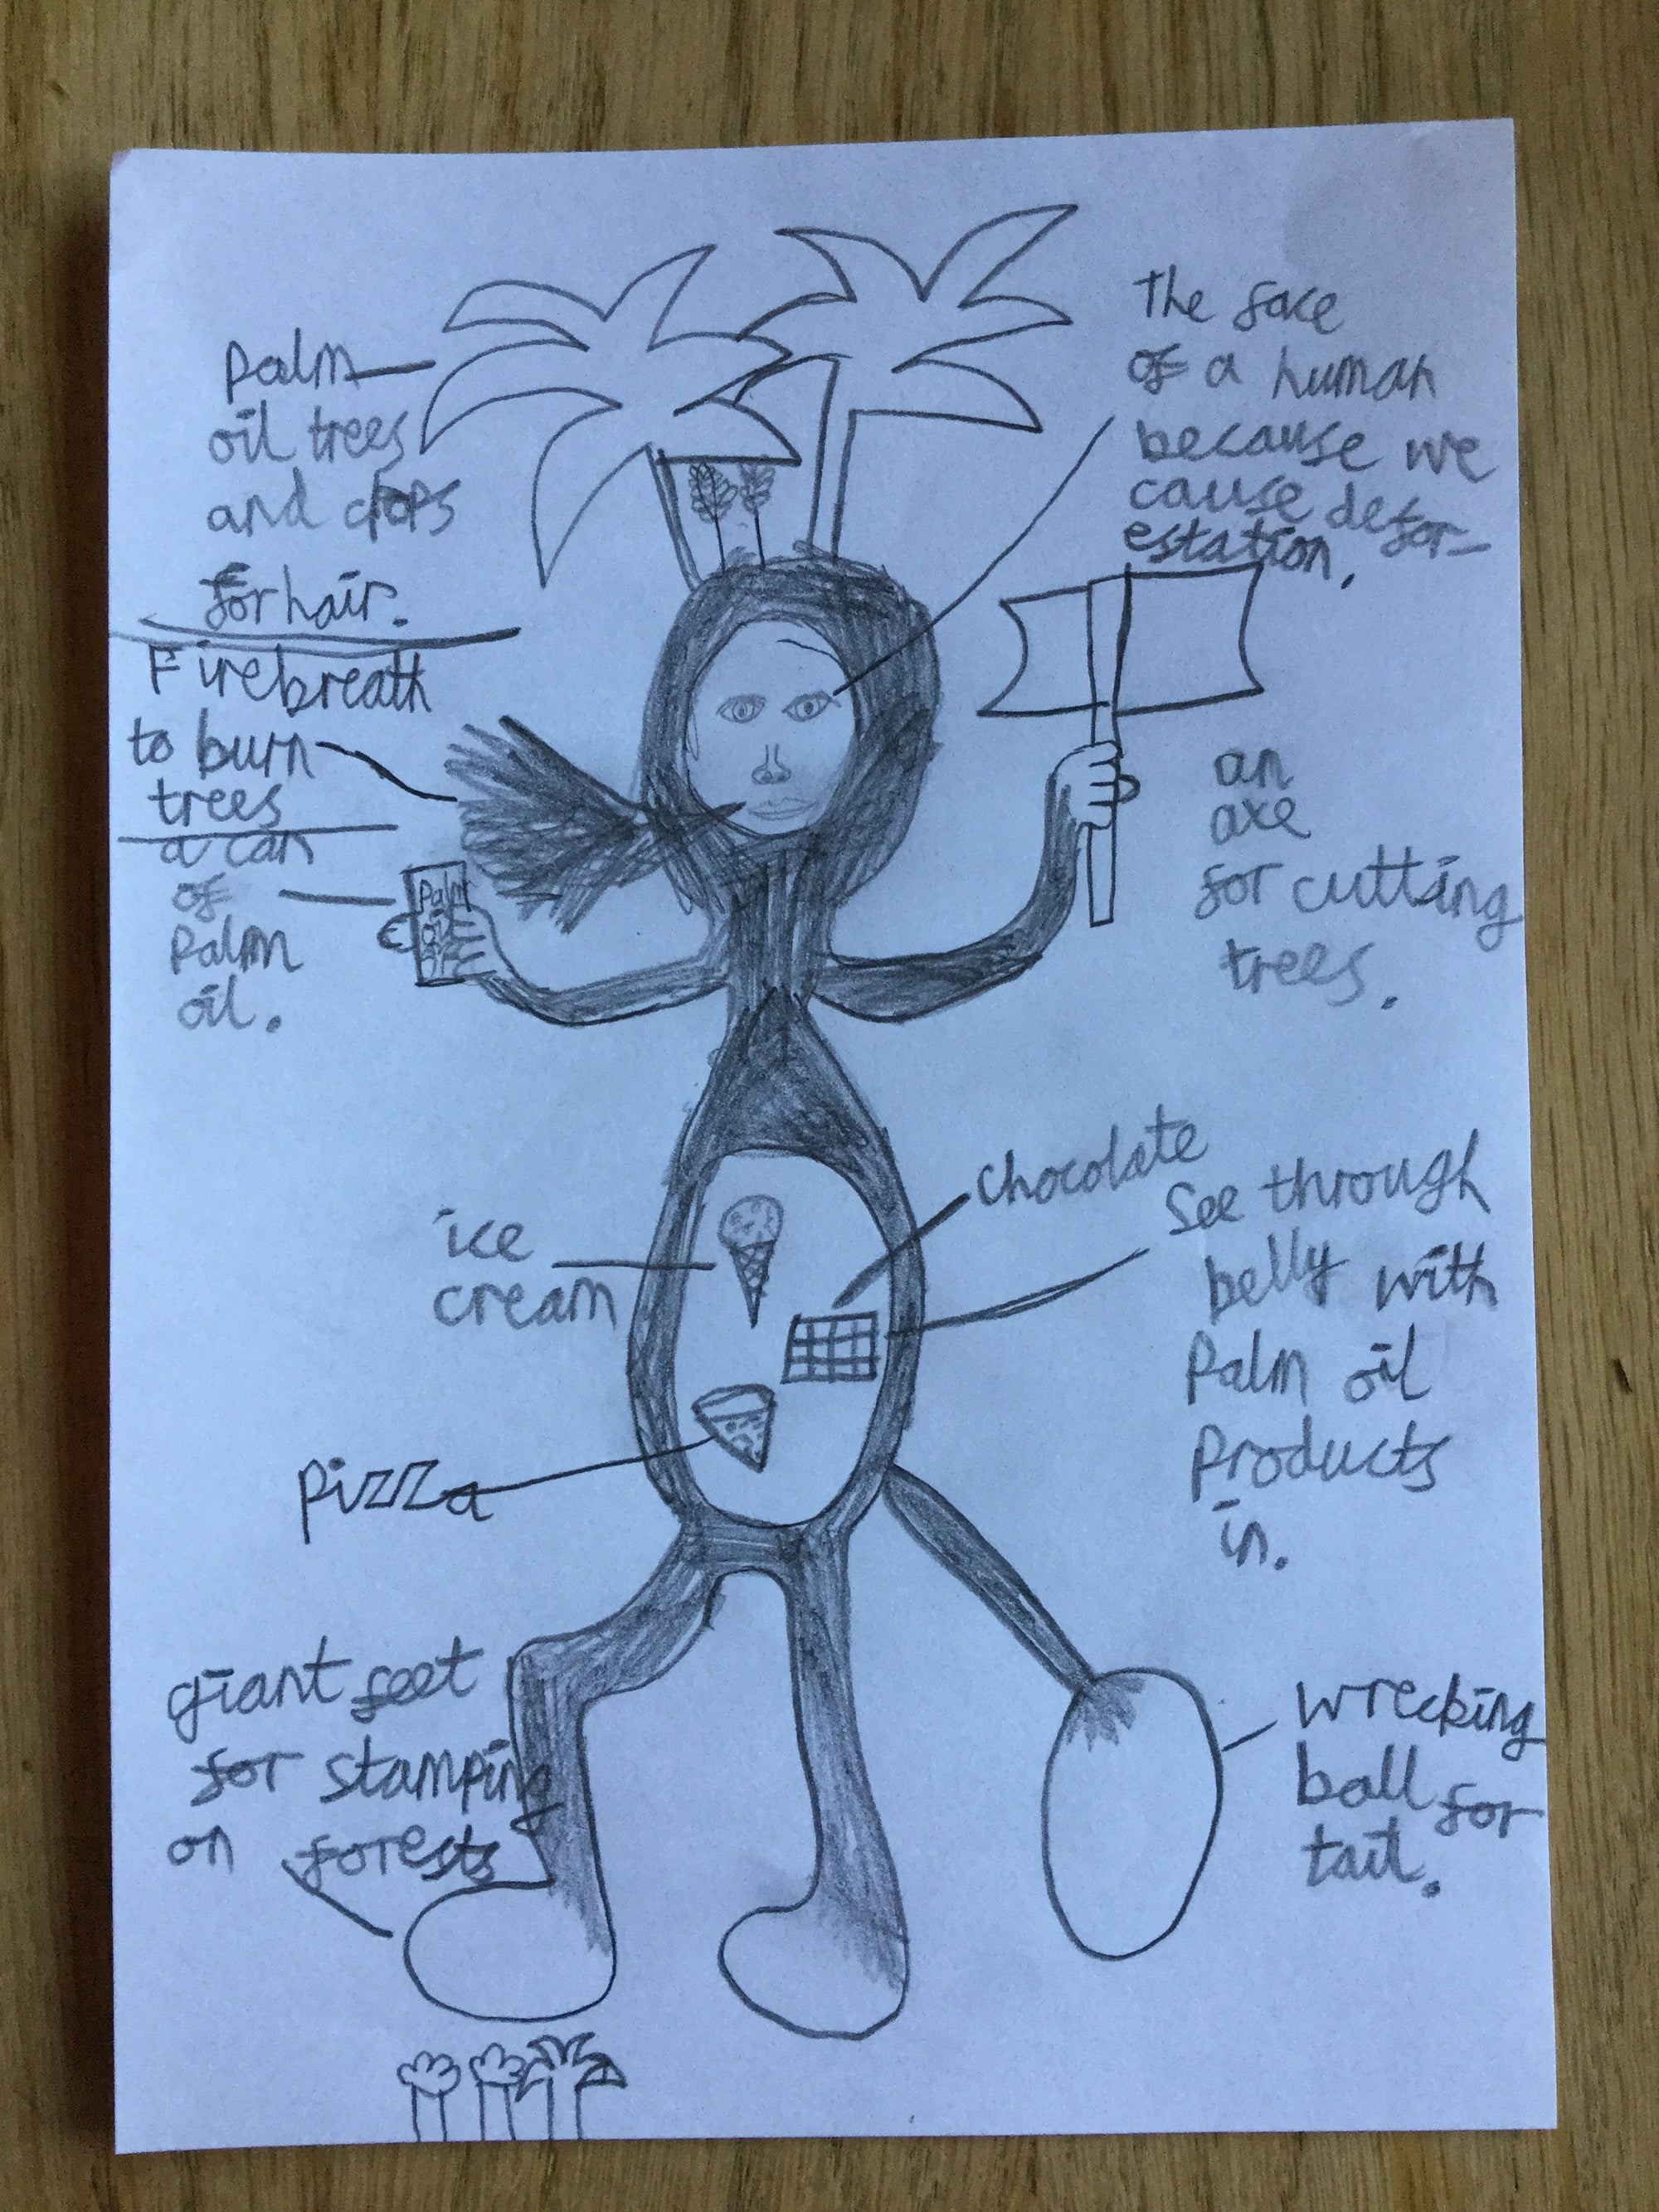 Palm
oil trees
and crops
for hair.
Fire breath
to burn
trees
a can
of
Palm
oil.
Palm
oil
The face
of a human
because we
cause defor-
estation.
an
axe
for cutting
trees.
ice
cream
chocolate
See through
belly with
Palm oil
Products
in.
pizza
giant feet
for stamping
on forests
wrecking
ball for
tail.